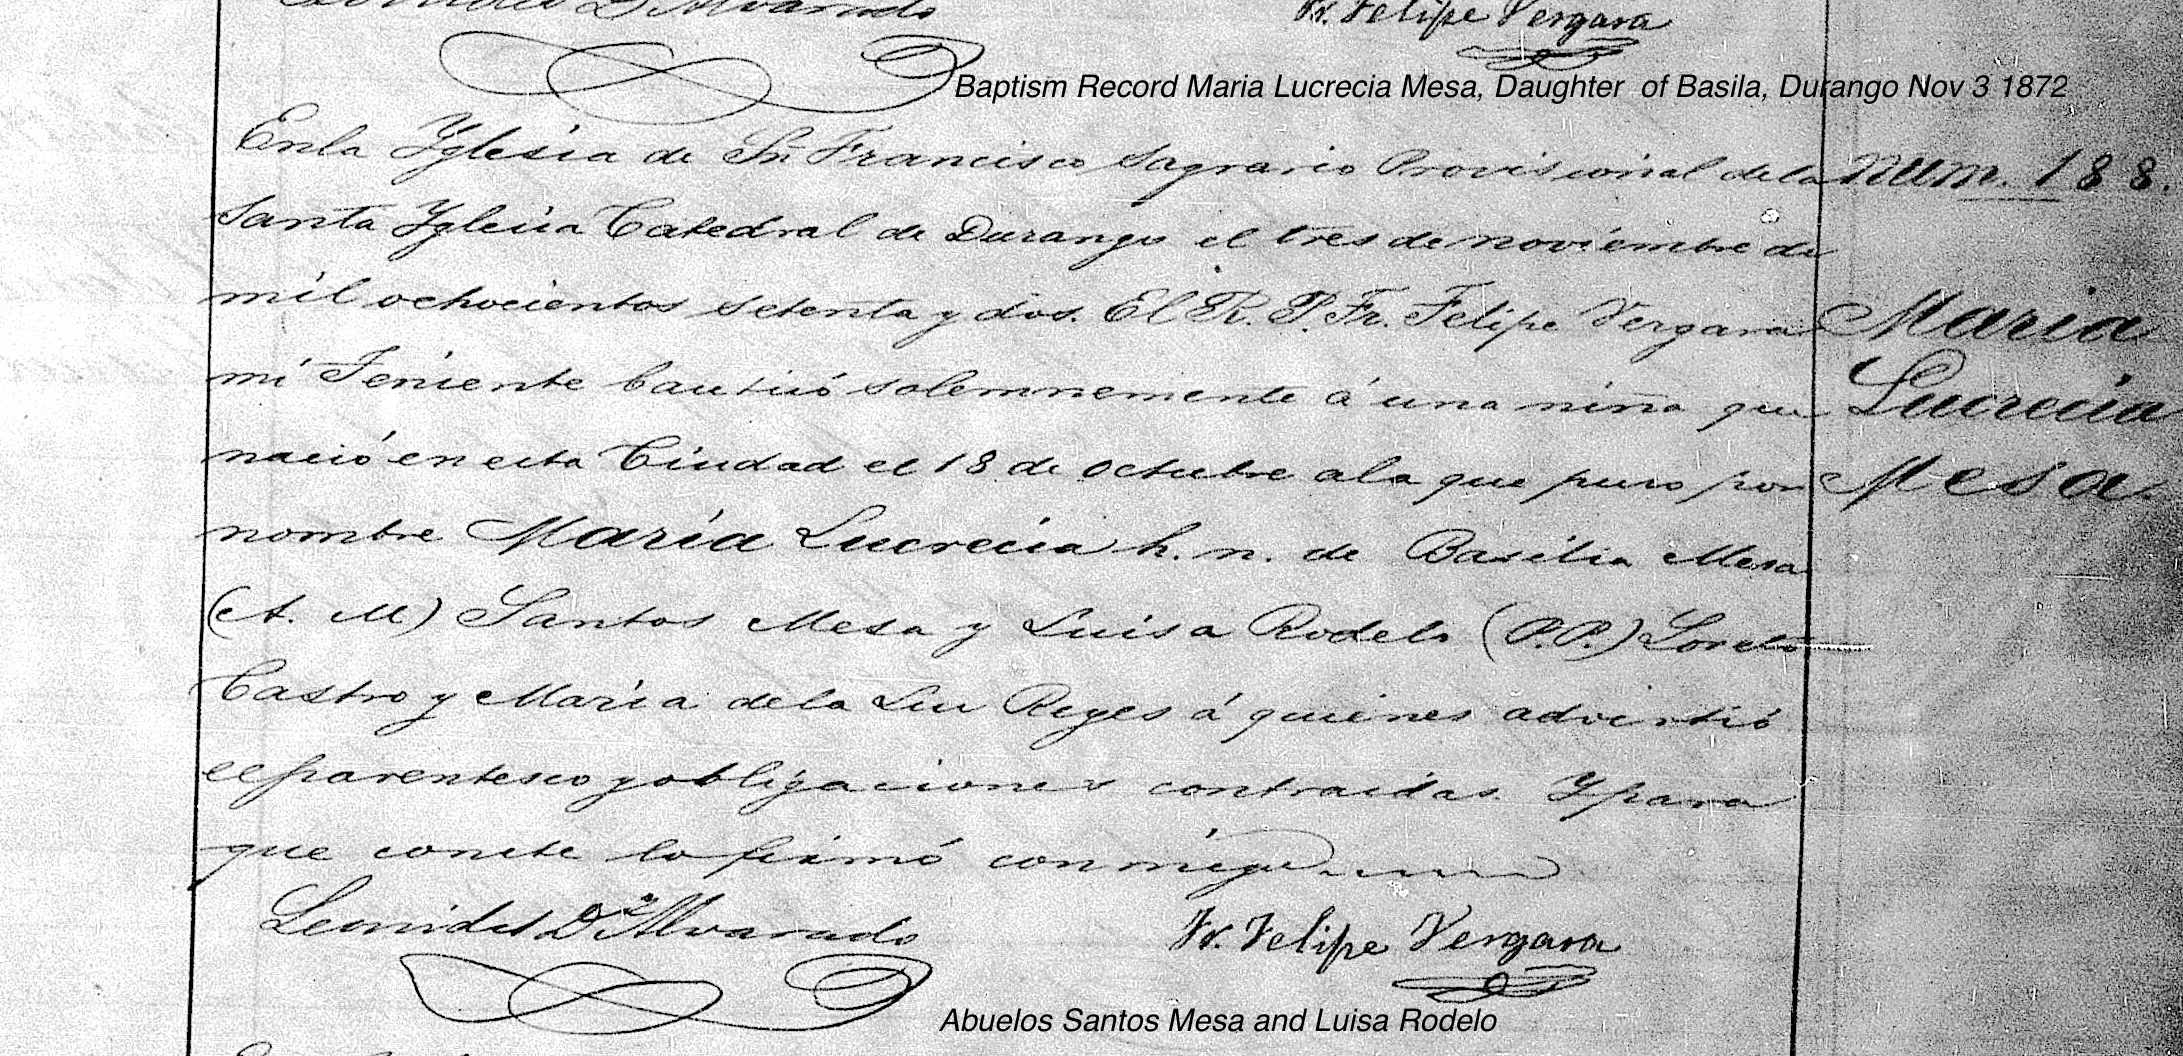 Fr. Felipe Vergara
Baptism Record Maria Lucrecia Mesa, Daughter of Basila, Durango Nov 3 1872
En la Yglesia de Sn Francisco Sagrario Provisional de la
Santa Yglesia Catedral de Durango el tres de noviembre de
mil ochocientos setenta y dos. El R. P. Fr. Felipe Vergara
mi Teniente bautisó solemnemente á una niña que
nació en esta Ciudad el 18 de octubre a la que puso por
nombre Maria Lucrecia h. n. de Basilia Mesa
(A. M) Santos Mesa y Luisa Rodelo (P.P.) Loreto
Castro y Maria de la Luz Reyes á quienes advirtió
el parentesco y obligaciones contraidas. Y para
que conste lo firmó conmigo
Num. 188.
Maria
Lucrecia
Mesa.
Leonides D. Alvarado
Fr. Felipe Vergara
Abuelos Santos Mesa and Luisa Rodelo